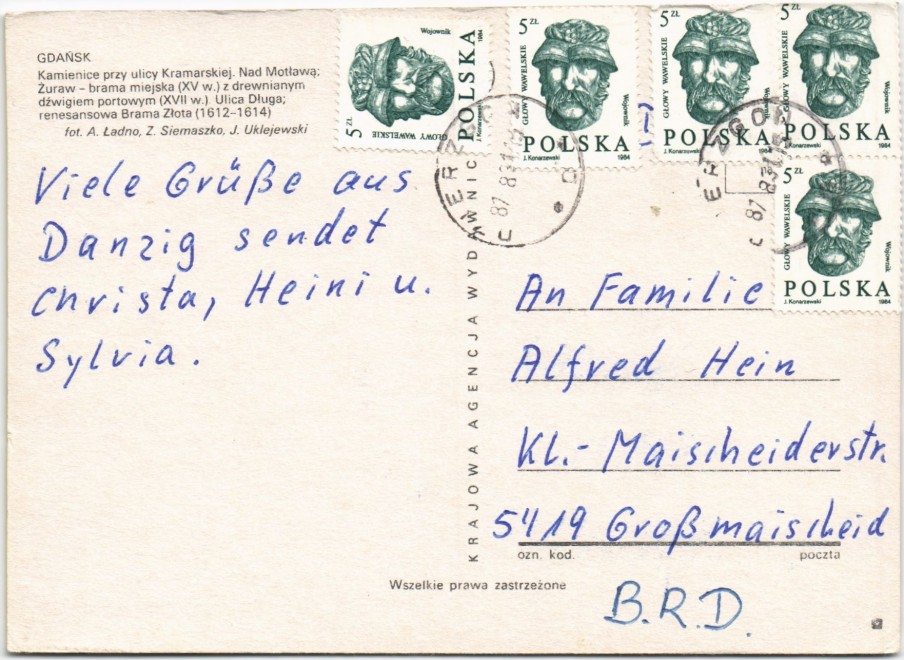 GDAŃSK
Kamienice przy ulicy Kramarskiej. Nad Motławą;
Żuraw – brama miejska (XV w.) z drewnianym
dźwigiem portowym (XVII w.) Ulica Długa;
renesansowa Brama Złota (1612–1614)
fot. A. Ładno, Z. Siemaszko, J. Uklejewski
Viele Grüße aus
Danzig sendet
Christa, Heini u.
Sylvia.
KRAJOWA AGENCJA WYDAWNICZA
5 ZŁ
GŁOWY WAWELSKIE
Wojownik
POLSKA
J. Konarzewski 1984
5 ZŁ
GŁOWY WAWELSKIE
Wojownik
POLSKA
J. Konarzewski 1984
5 ZŁ
GŁOWY WAWELSKIE
Wojownik
POLSKA
J. Konarzewski 1984
5 ZŁ
GŁOWY WAWELSKIE
Wojownik
POLSKA
1984
5 ZŁ
GŁOWY WAWELSKIE
Wojownik
POLSKA
J. Konarzewski 1984
An Familie
Alfred Hein
Kl.-Maischeiderstr.
5419 Großmaischeid
ozn. kod. poczta
B.R.D.
Wszelkie prawa zastrzeżone